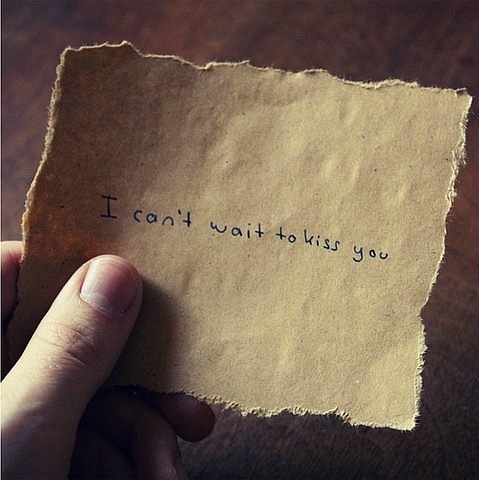 I can't wait to kiss you